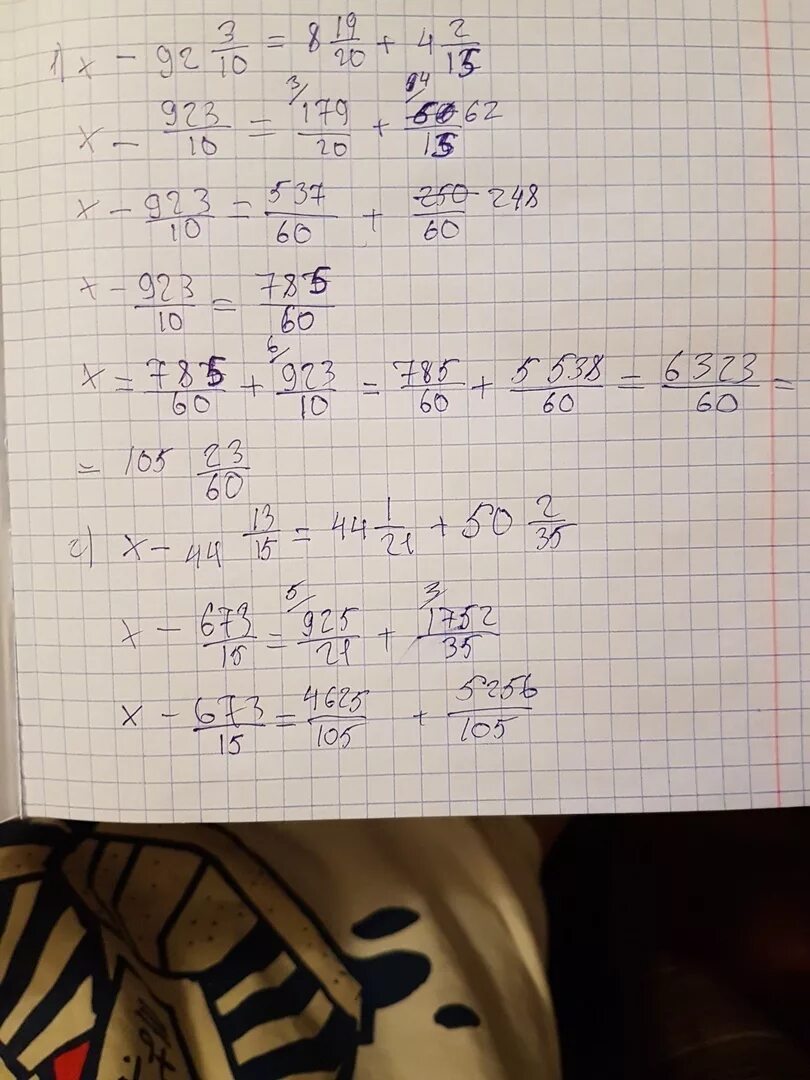 1) x - 92 3/10 = 8 19/20 + 4 2/15
x - 923/10 = 179/20 (3/) + 62/15 (4/)
x - 923/10 = 537/60 + 250/60 248
x - 923/10 = 785/60
x = 785/60 + 923/10 (6/) = 785/60 + 5 538/60 = 6323/60 =
= 105 23/60
2) x - 44 13/15 = 44 1/21 + 50 2/35
x - 673/15 = 925/21 (5/) + 1752/35 (3/)
x - 673/15 = 4625/105 + 5256/105